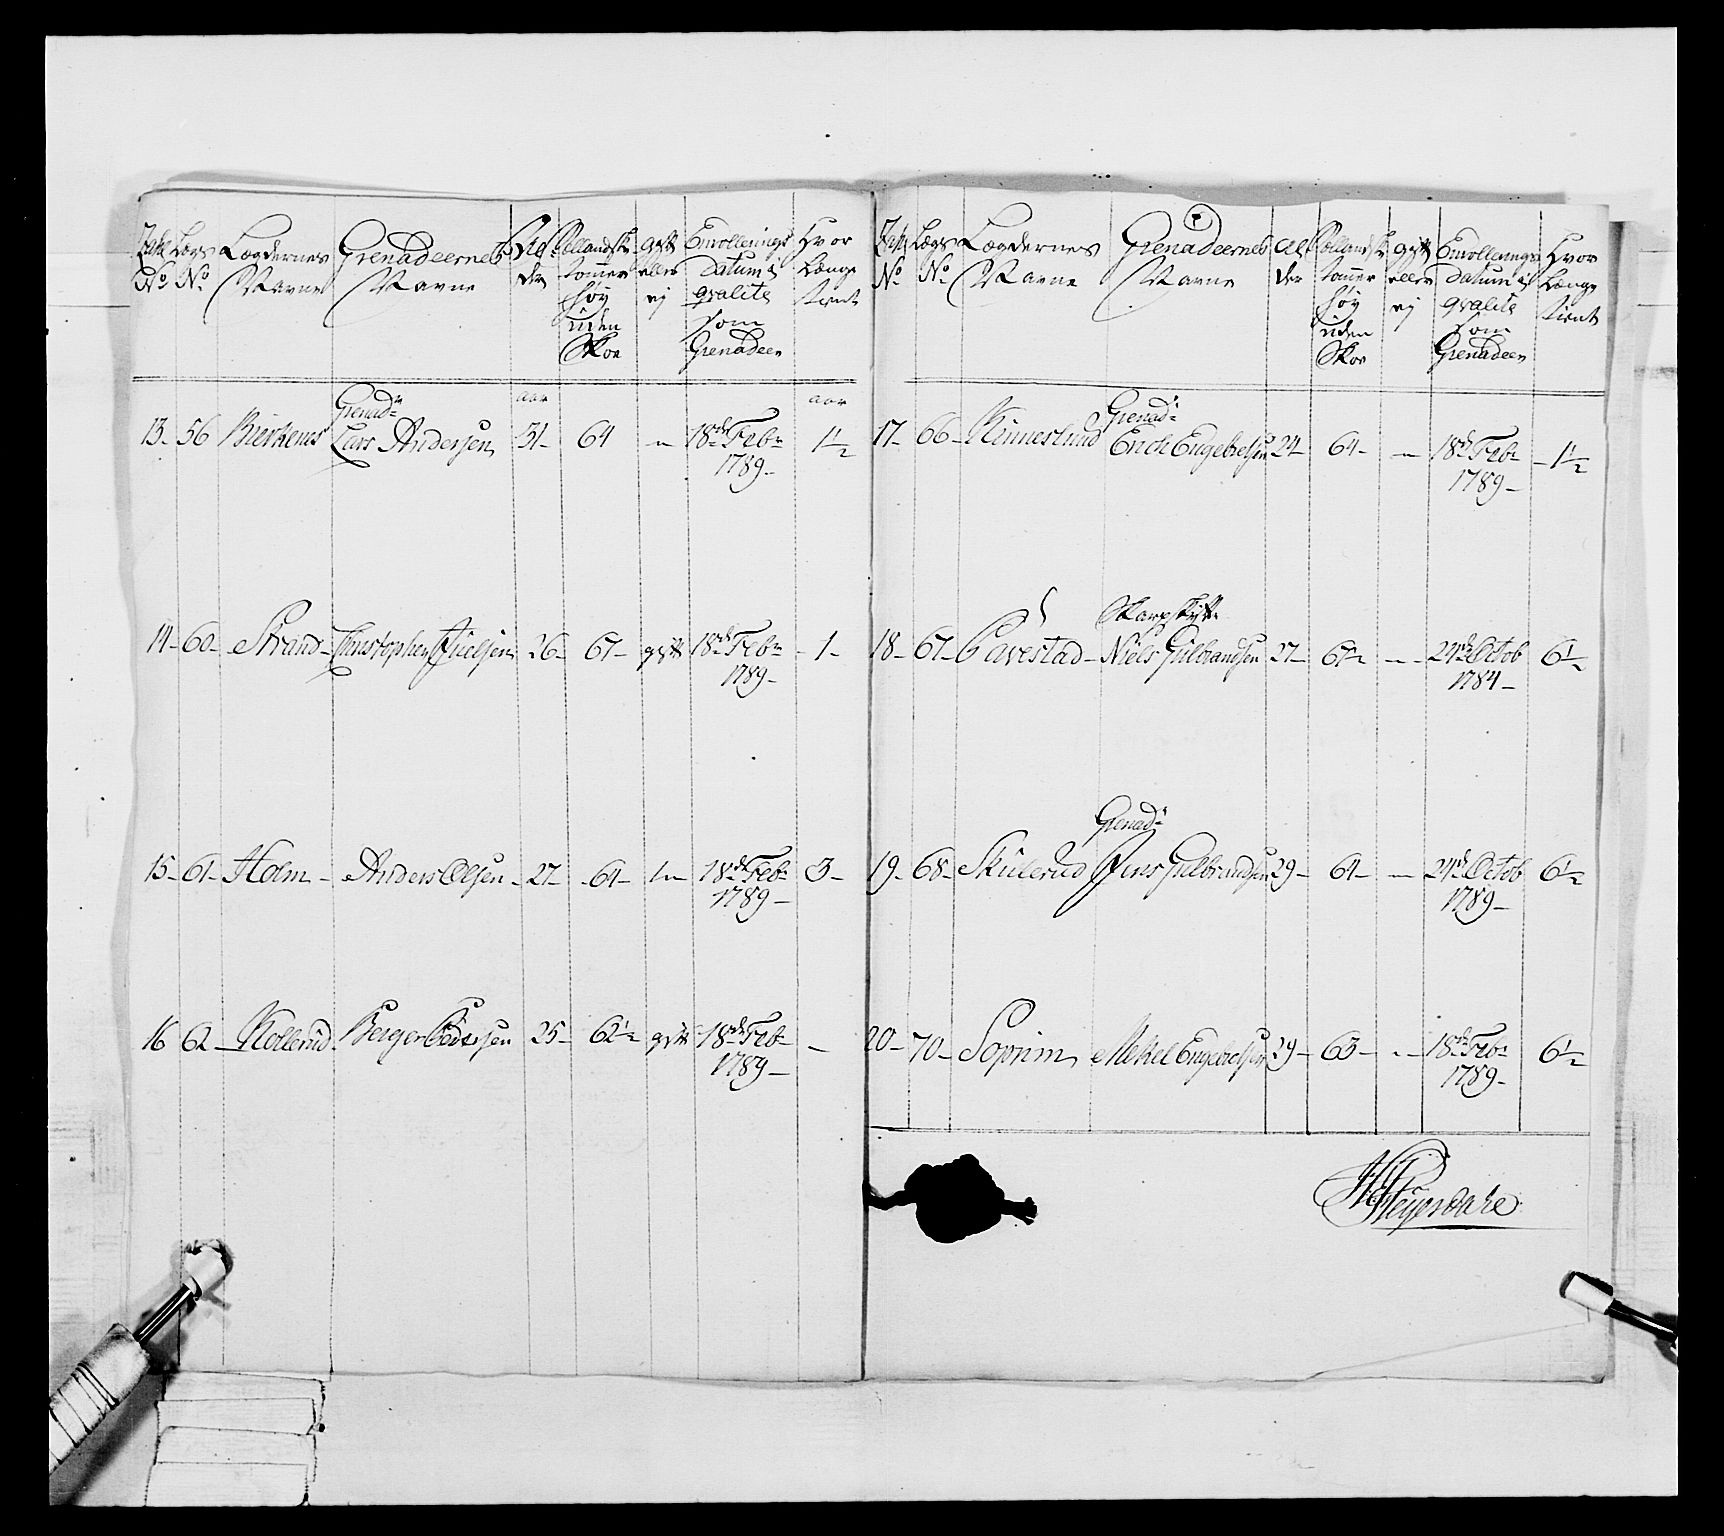 No Lægs No Lægdernes Navne Grenadeernes Navne Alder høy uden Skoe gift eller ej Enrollerings Datum i qvalite som Grenadeer Hvor Længe tient
aar aar
Grenadr
13- 56 Lars Andersen 31- 64 - 18de Febr 1789- 1½
14- 60- Strand- Christopher 26- 67- gift 18de Febr 1789- - 1 -
15- 61- Holm- Anders Olsen- 27- 64- 18de Febr 1789- 3-
16 62- Kollerud- Berger Pedersen 25- 62½ gift 18de Febr 1789- -
No Lægs No Lægdernes Navne Grenadeernes Navne Alder høy uden Skoe gift eller ej Enrollerings Datum i qvalite som Grenadeer Hvor Længe tient
Grenadr
17- 66- Kinneslund Erich Engebretsen 24- 64- - 18de Febr 1789- - 1½
Skarpskytt
18- 67- Niels Gulbrandsen 27- 67- - 24de Octob 1784- 6½
Grenadr
19- 68- Skulerud Jens Gulbrandsen 29- 64- - 24de Octob 1789- 6½
20- 70- Soprim Mekel Engebretsen 29- 63- - 18de Febr 1789- 6½